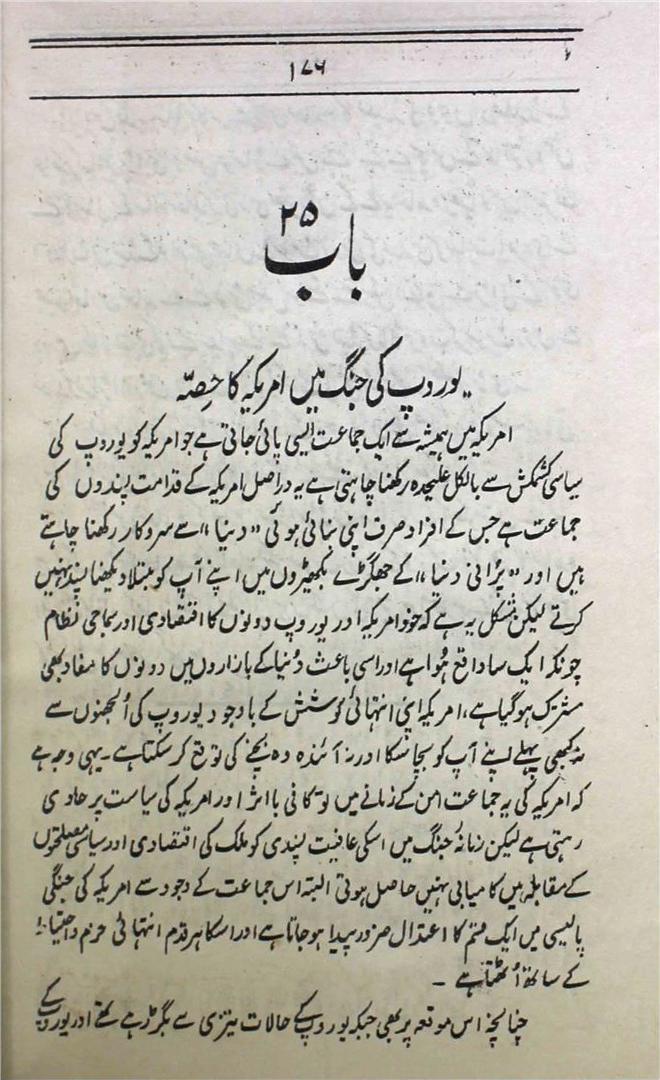 ۱۷۶
باب ۲۵
یوروپ کی جنگ میں امریکہ کا حصّہ
امریکہ میں ہمیشہ سے ایک جماعت ایسی پائی جاتی ہے جو امریکہ کو یوروپ کی
سیاسی کشمکش سے بالکل علیحدہ رکھنا چاہتی ہے یہ دراصل امریکہ کے قدامت پسندوں کی
جماعت ہے جس کے افراد صرف اپنی بنائی ہوئی "دنیا" سے سروکار رکھنا چاہتے
ہیں اور "پُرانی دنیا" کے جھگڑے بکھیڑوں میں اپنے آپ کو مبتلا دیکھنا پسند نہیں
کرتے لیکن مشکل یہ ہے کہ خود امریکہ اور یوروپ دونوں کا اقتصادی اور سماجی نظام
چونکہ ایک سا واقع ہُوا ہے اور اسی باعث دُنیا کے بازاروں میں دونوں کا مفاد بھی
مشترک ہوگیا ہے، امریکہ اپنی انتہائی کوشش کے باوجود یوروپ کی اُلجھنوں سے
نہ کبھی پہلے اپنے آپ کو بچا سکا اور نہ آئندہ وہ بچنے کی توقع کر سکتا ہے۔ یہی وجہ ہے
کہ امریکہ کی یہ جماعت امن کے زمانے میں تو کافی بااثر اور امریکہ کی سیاست پر حاوی
رہتی ہے لیکن زمانۂ جنگ میں اسکی عافیت پسندی کو ملک کی اقتصادی اور سیاسی مصلحتوں
کے مقابلہ میں کامیابی نہیں حاصل ہوتی البتہ اس جماعت کے وجود سے امریکہ کی جنگی
پالیسی میں ایک قسم کا اعتدال ضرور پیدا ہو جاتا ہے اور اسکا ہر قدم انتہائی حزم و احتیاط
کے ساتھ اُٹھتا ہے ۔
چنانچہ اس موقعہ پر بھی جبکہ یوروپ کے حالات تیزی سے بگڑ رہے تھے اور یوروپ کے